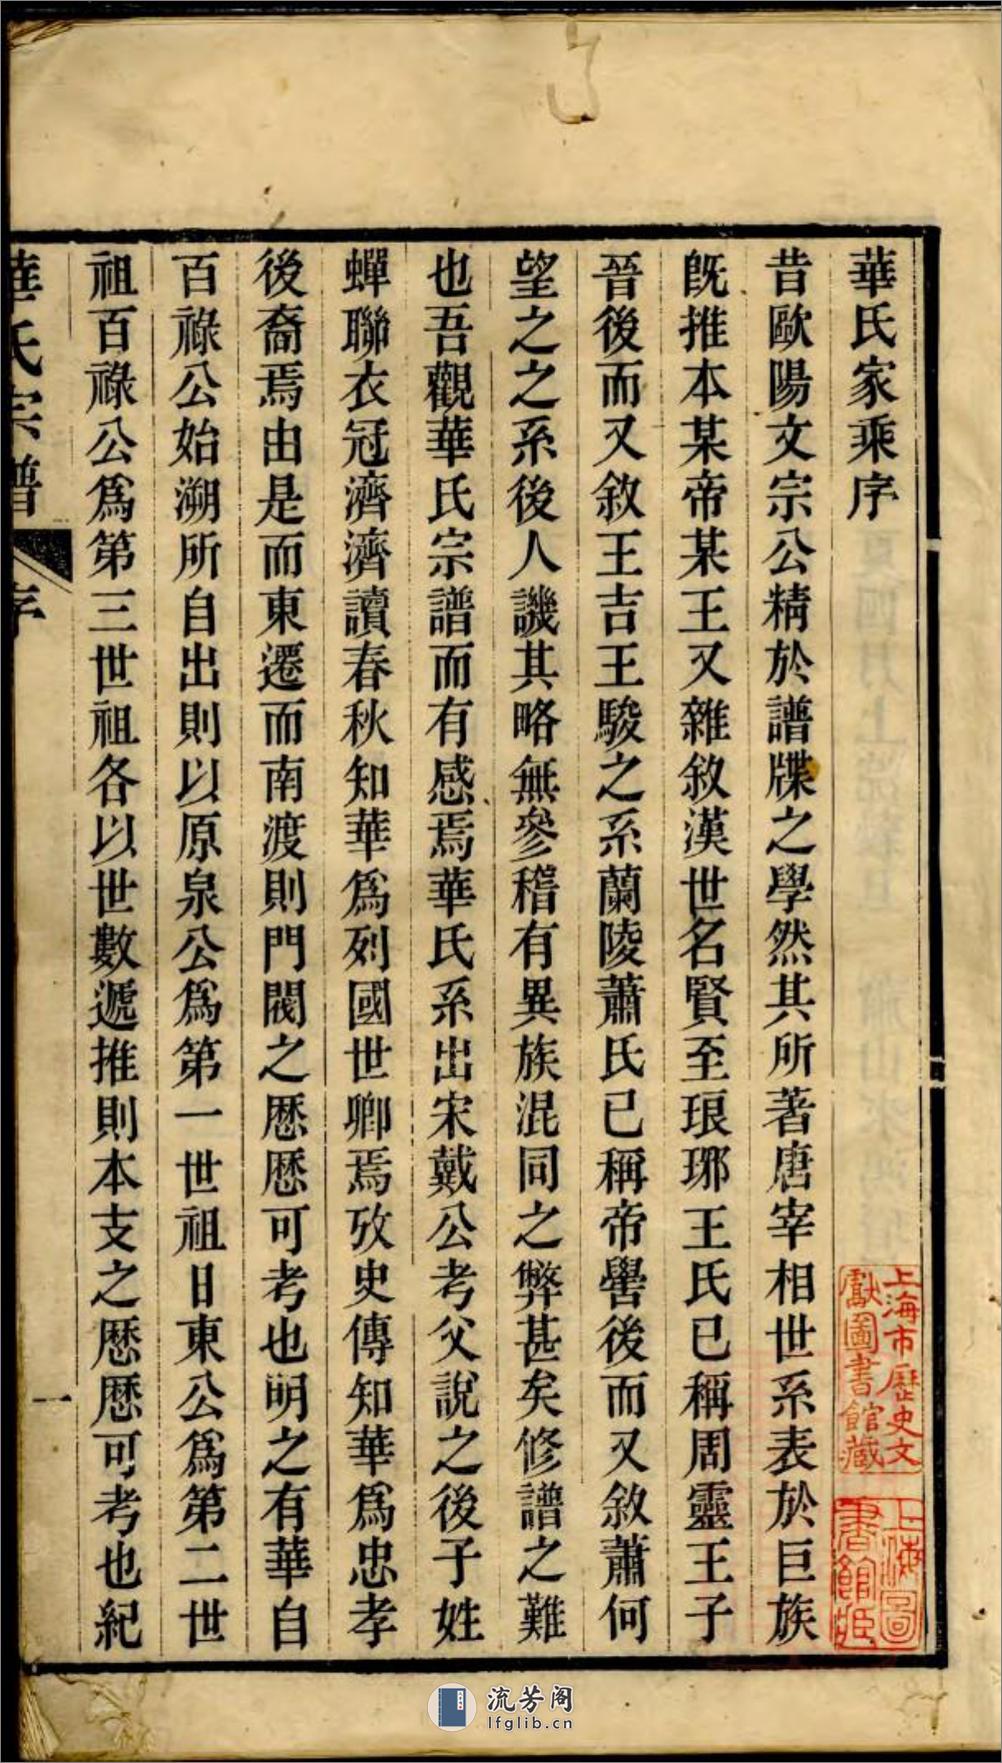 華氏家乘序
昔歐陽文宗公精於譜牒之學然其所著唐宰相世系表於巨族
旣推本某帝某王又雜敘漢世名賢至琅琊王氏已稱周靈王子
晉後而又敘王吉王駿之系蘭陵蕭氏已稱帝嚳後而又敘蕭何
望之之系後人譏其略無參稽有異族混同之弊甚矣修譜之難
也吾觀華氏宗譜而有感焉華氏系出宋戴公考父說之後子姓
蟬聯衣冠濟濟讀春秋知華爲列國世卿焉攷史傳知華爲忠孝
後裔焉由是而東遷而南渡則門閥之歷歷可考也明之有華自
百祿公始溯所自出則以原泉公爲第一世祖日東公爲第二世
祖百祿公爲第三世祖各以世數遞推則本支之歷歷可考也紀
華氏宗譜 序 一
上海市歷史文
獻圖書館藏
上海圖
書館藏
流芳阁
lfglib.cn